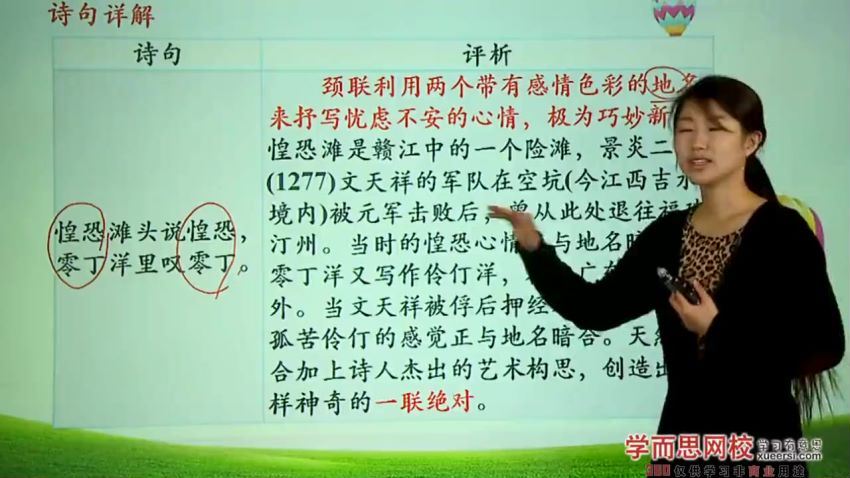 诗句详解
诗句
评析
惶恐滩头说惶恐，
零丁洋里叹零丁。
颈联利用两个带有感情色彩的地名
来抒写忧虑不安的心情，极为巧妙新
惶恐滩是赣江中的一个险滩，景炎二
(1277)文天祥的军队在空坑(今江西吉水
境内)被元军击败后，曾从此处退往福
汀州。当时的惶恐心情 与地名暗
零丁洋又写作伶仃洋， 广东
外。当文天祥被俘后押经
孤苦伶仃的感觉正与地名暗合。天然
合加上诗人杰出的艺术构思，创造出
样神奇的一联绝对。
学而思网校 学习有意思
xueersi.com
仅供学习非商业用途